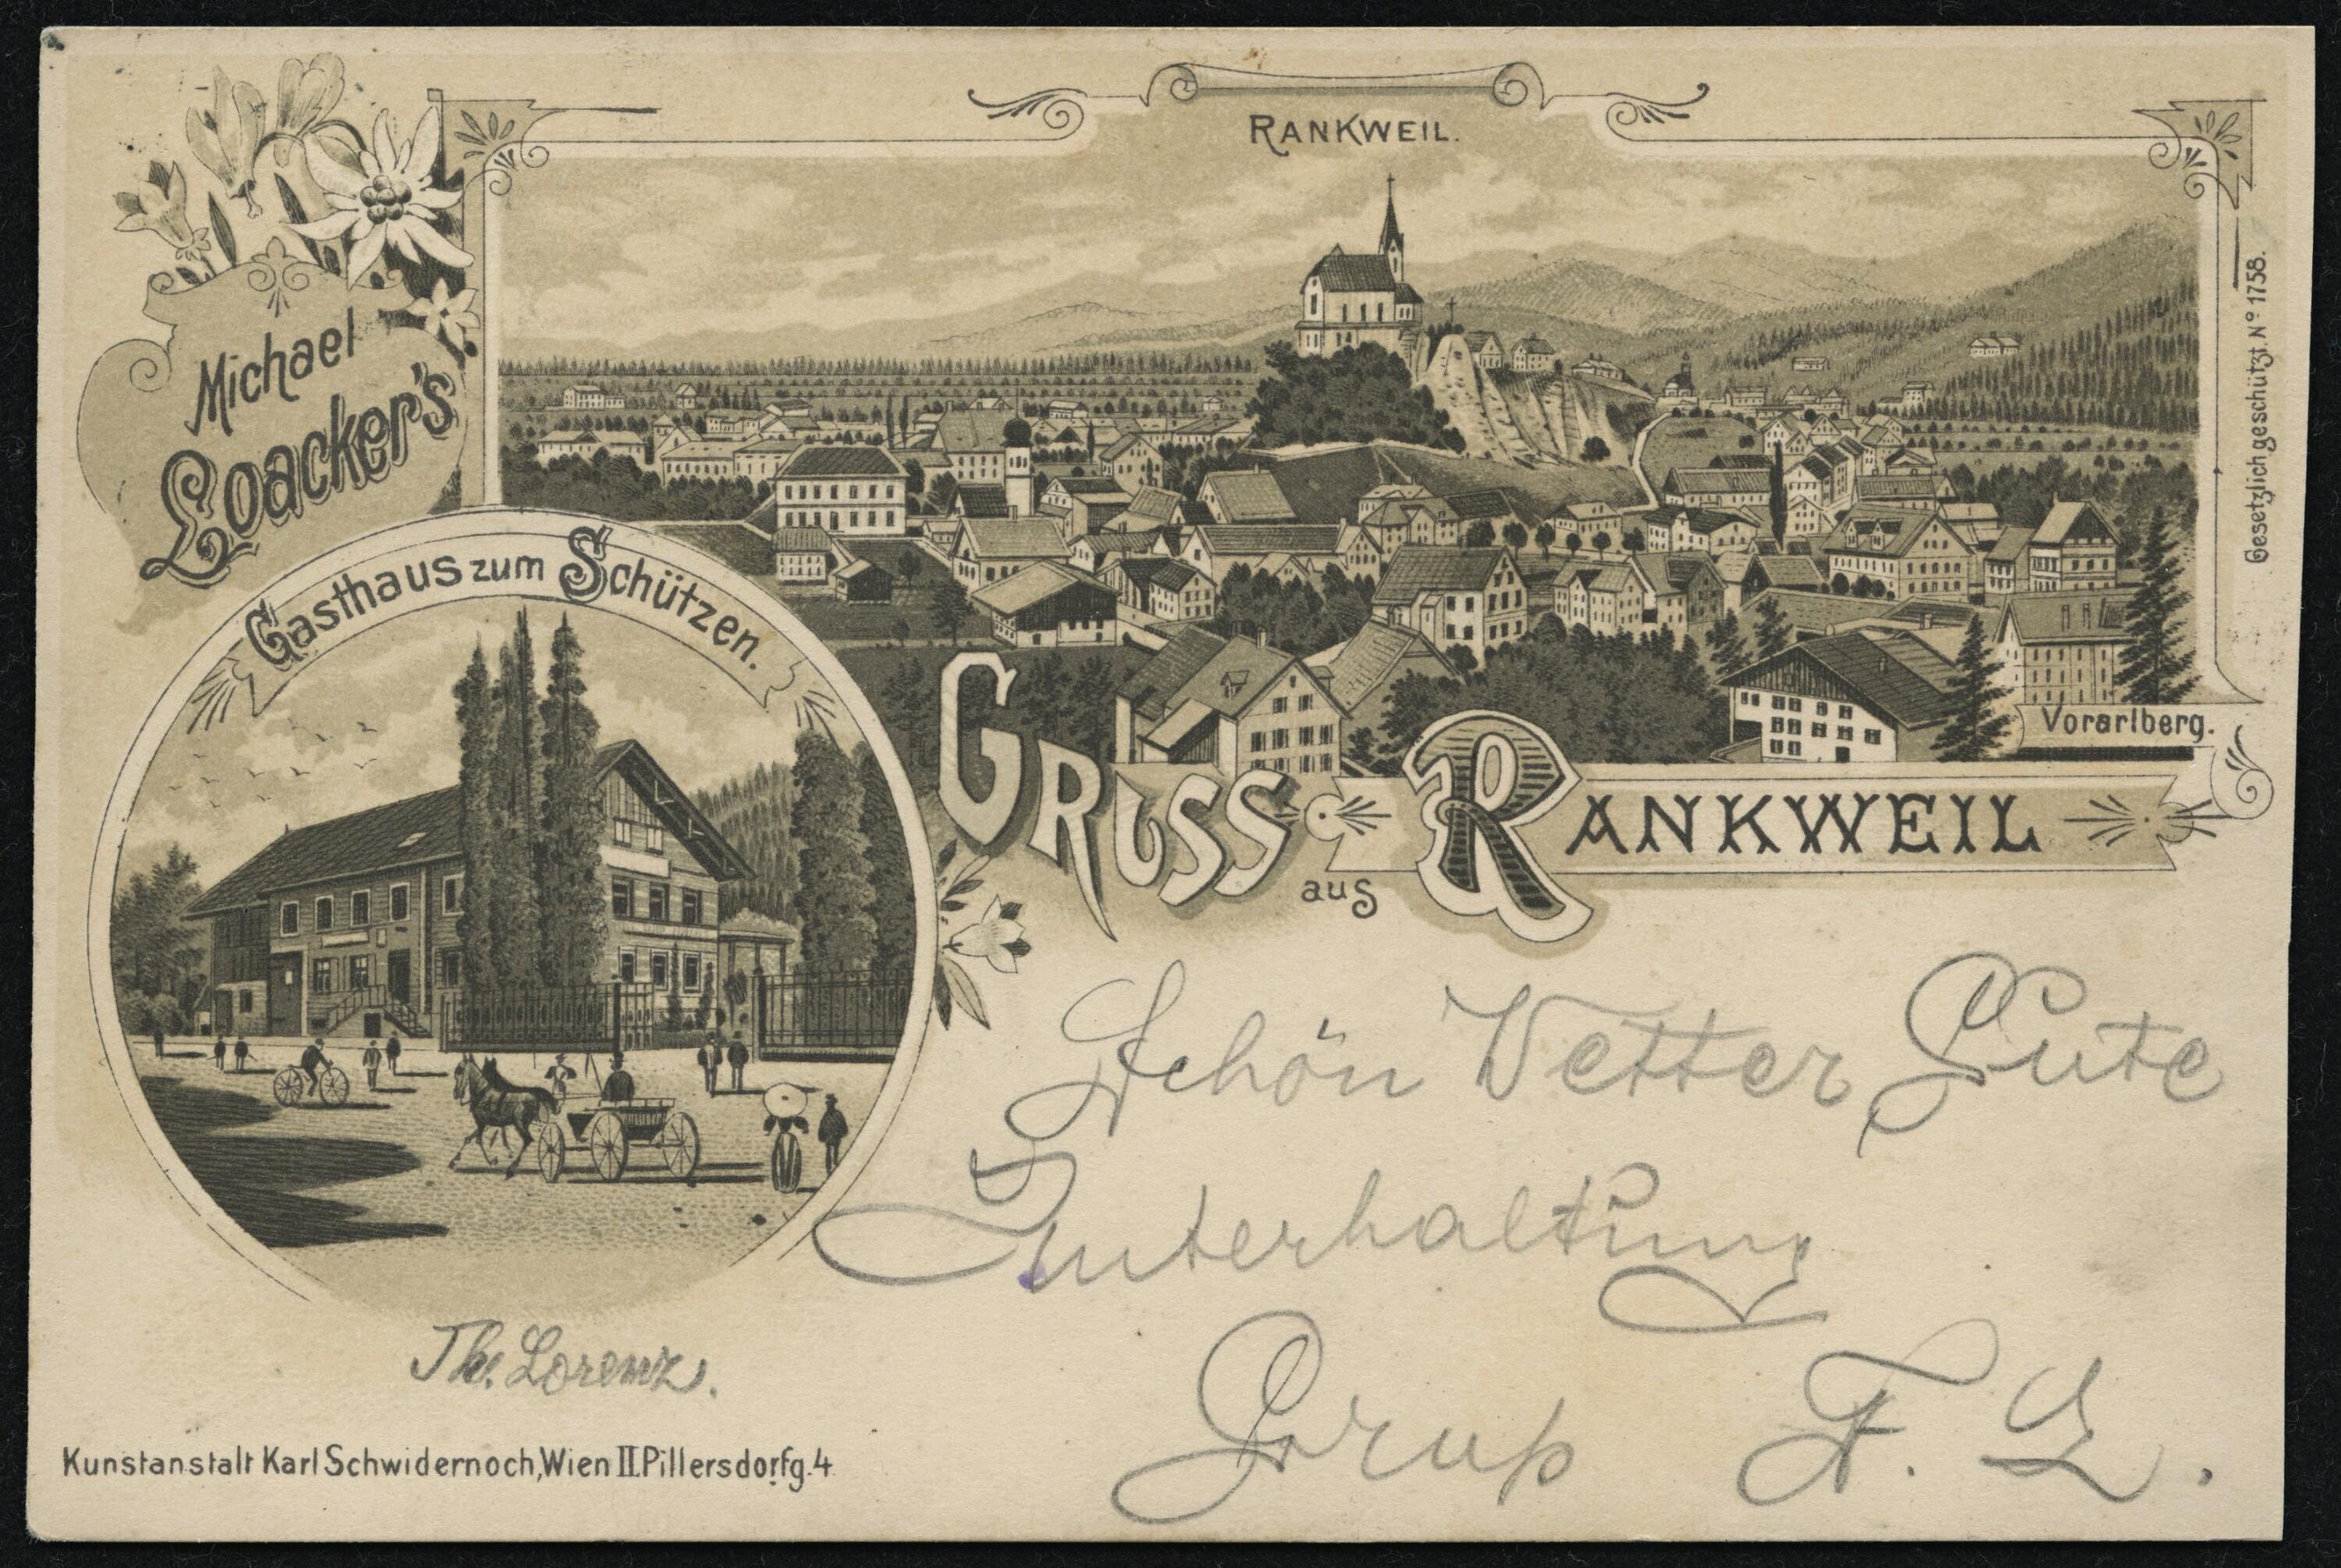 RANKWEIL.
Michael
Loacker's
Gasthaus zum Schützen.
Gesetzlich geschützt. Nº 1758.
Vorarlberg.
GRUSS aus RANKWEIL
Schön Wetter, Gute
Unterhaltung
Gruß F. L.
Th. Lorenz.
Kunstanstalt Karl Schwidernoch, Wien II. Pillersdorfg. 4